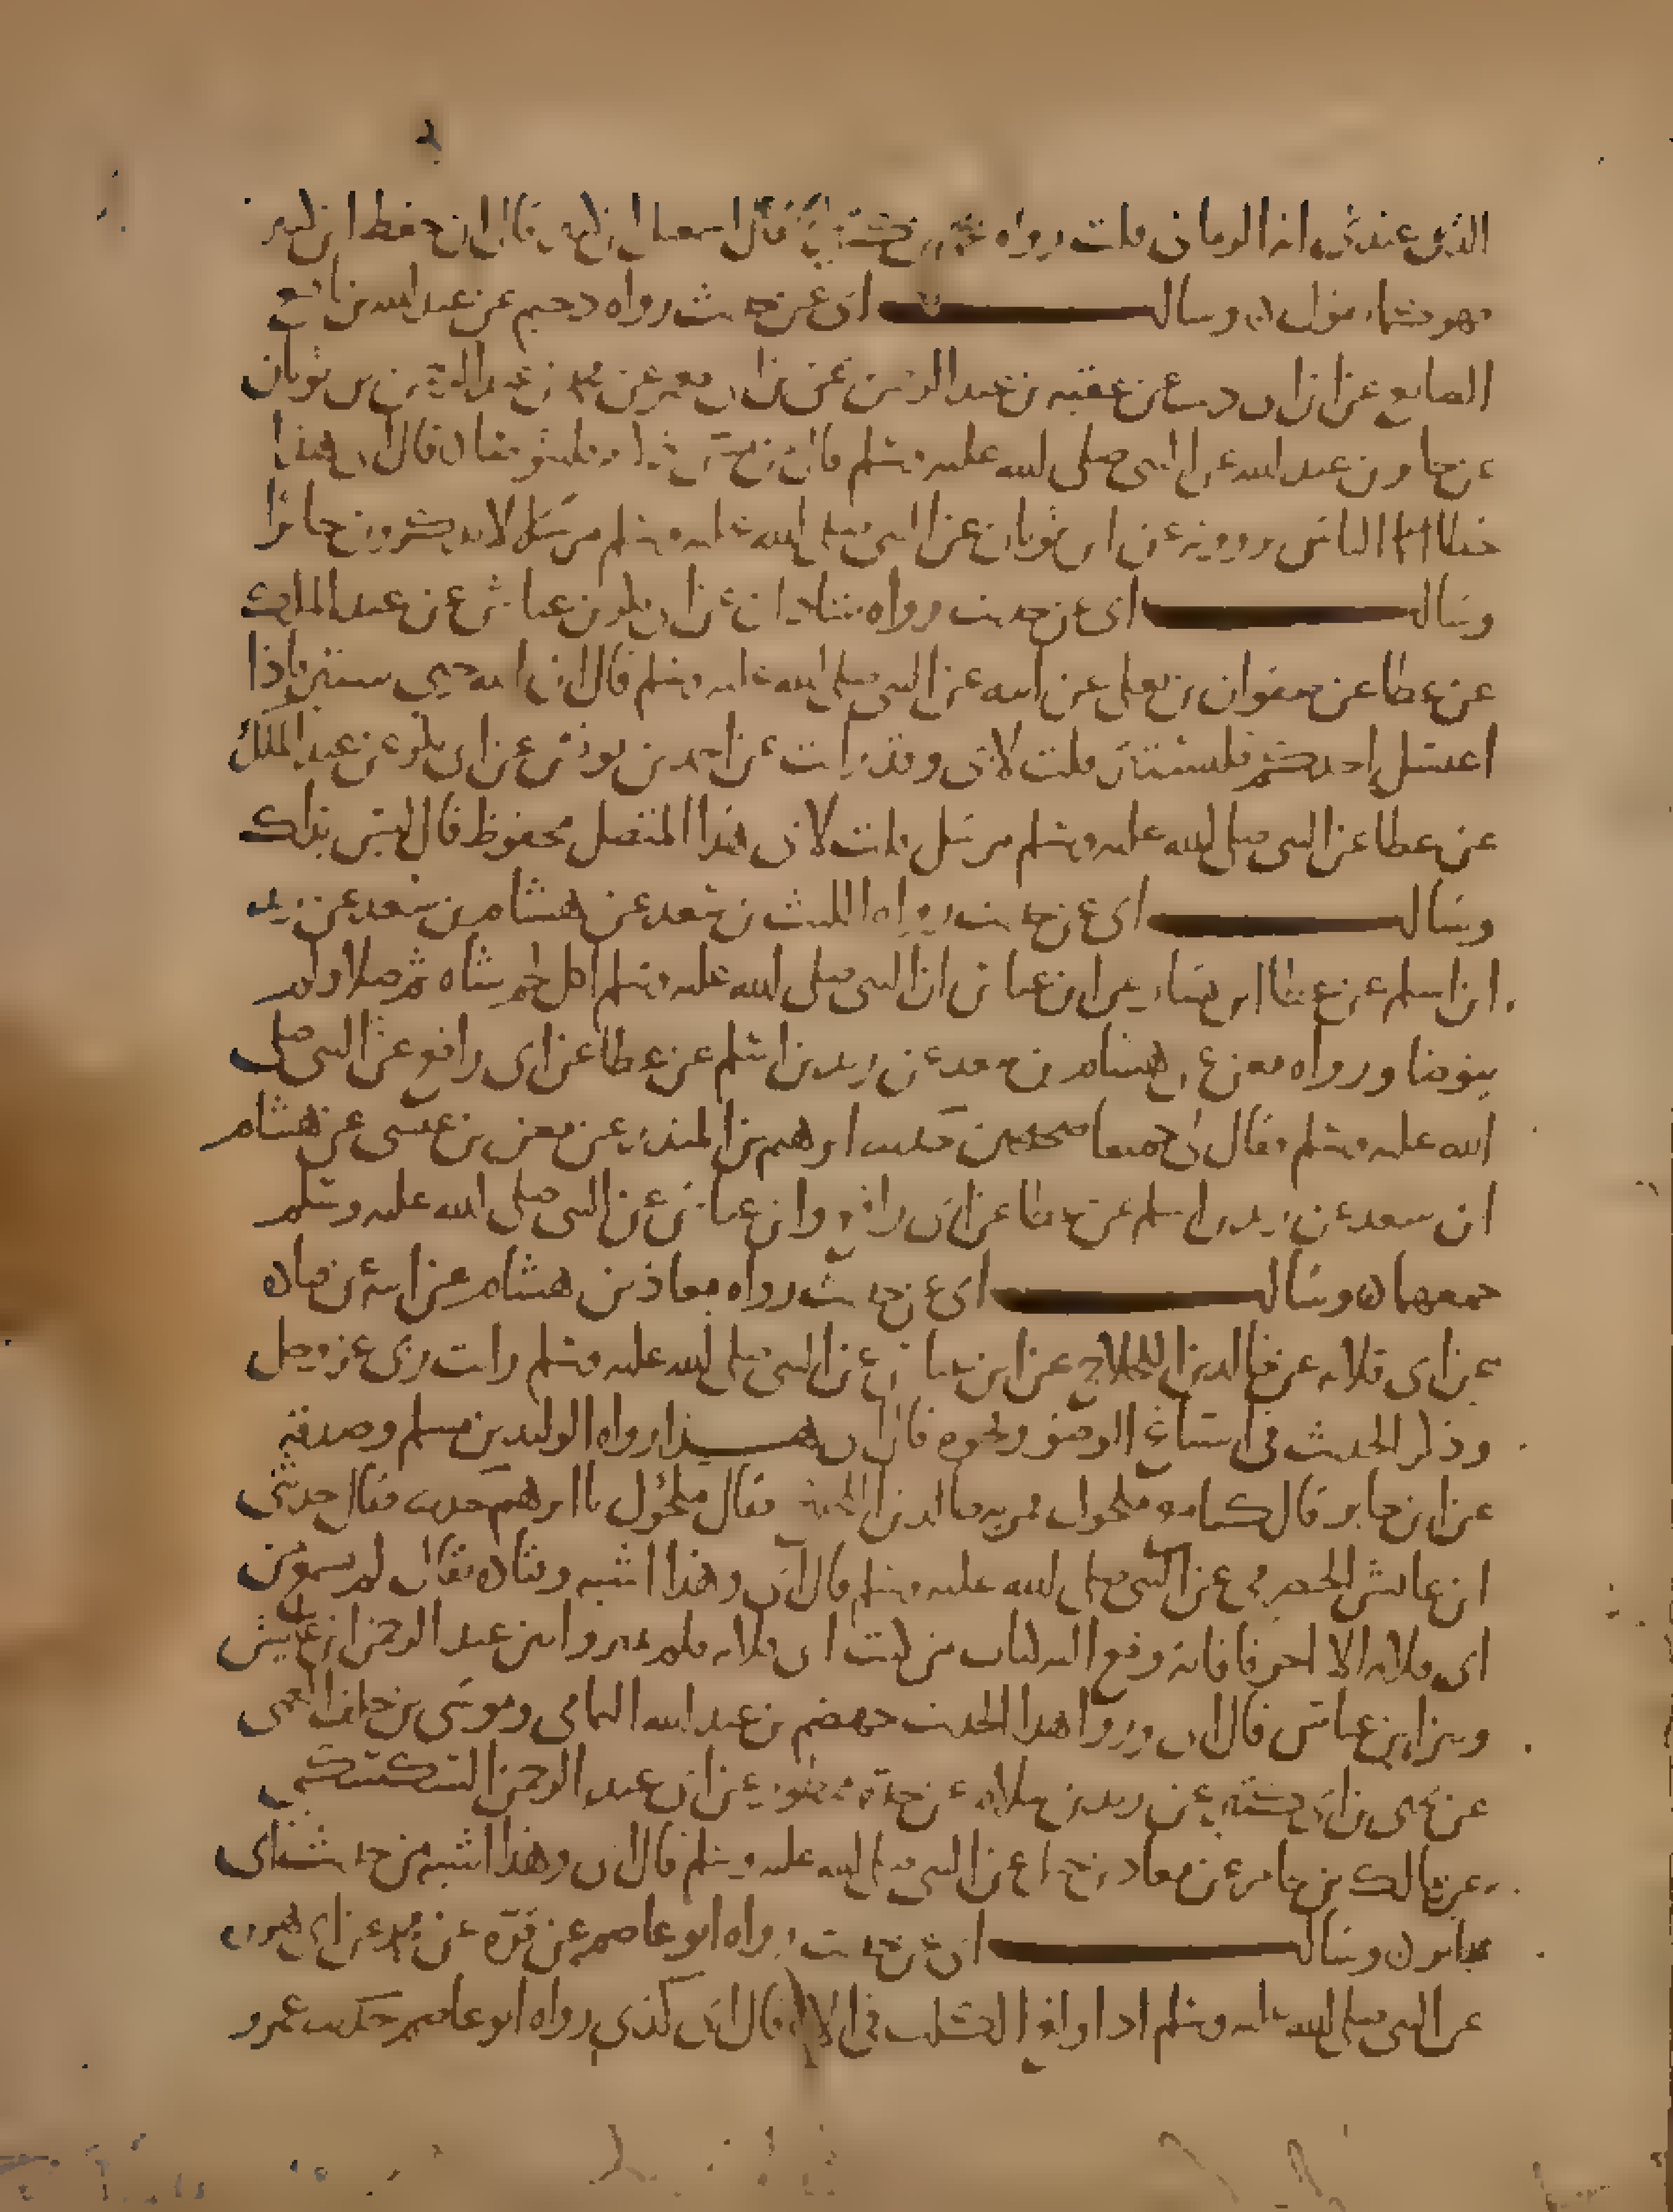 الذي عندي انه الرماني قلت رواه قال اسمعيل ان حفظ ابن
فهو هشام وسالت ابي عن حديث رواه دحيم عن عبد الله بن نافع
الصايغ عن ابن ابي ذيب عن عقبه بن عبد الرحمن عن محمد بن عبد الرحمن بن ثوبان
عن جابر بن عبد الله عن النبي صلى الله عليه وسلم قال من مس فليتوضا قال ابي هذا
خطا الناس يروونه عن ابن ثوبان عن النبي صلى الله عليه وسلم مرسل لا يذكرون جابرا
وسالت ابي عن حديث رواه شاذان عن ابي بكر بن عياش عن عبد الملك
عن عطا عن صفوان بن يعلى عن ابيه عن النبي صلى الله عليه وسلم قال ان الله حيي ستير فاذا
اغتسل احدكم فليستتر قلت لابي وقد رايت عن احمد بن يونس عن ابي بكر عن عبد الملك
عن عطا عن النبي صلى الله عليه وسلم مرسل قلت لابي هذا المتصل محفوظ قال ليس بذاك
وسالت ابي عن حديث رواه الليث بن سعد عن هشام بن سعد عن زيد
ابن اسلم عن عطا ابن يسار عن ابن عباس ان النبي صلى الله عليه وسلم اكل لحم شاه ثم صلا ولم
يتوضا ورواه معن عن هشام بن سعد عن زيد بن اسلم عن عطا عن ابي رافع عن النبي صلى
الله عليه وسلم فقال لي جميعا صحيحين حدثنا ابرهيم بن المنذر عن معن بن عيسى عن هشام
ابن سعد عن زيد بن اسلم عن عطا عن ابي رافع وابن عباس عن النبي صلى الله عليه وسلم
جمعهما وسالت ابي عن حديث رواه معاذ بن هشام عن ابيه عن قتاده
عن ابي قلابه عن خالد بن اللجلاج عن ابن عباس عن النبي صلى الله عليه وسلم رايت ربي عز وجل
وذكر الحديث في اسباغ الوضو ونحوه قال ابي هذا رواه الوليد بن مسلم وصدقه
عن ابن جابر قال كنا مع مكحول فمر به خالد بن اللجلاج فقال مكحول يا ابرهيم حدثنا فقال حدثني
ابن عايش الحضرمي عن النبي صلى الله عليه وسلم قال ابي وهذا اشبه وقتاده يقال لم يسمع من
ابي قلابه الا احرفا فانه وقع اليه كتاب من كتب ابي قلابه فلم يميزوا بين عبد الرحمن ابن عايش
وبين ابن عباس قال ابي وروا هذا الحديث جهضم بن عبد الله اليمامي وموسى بن خلف العمي
عن يحيى بن ابي كثير عن زيد بن سلام عن جده ممطور عن ابي عبد الرحمن السكسكي
عن مالك بن يخامر عن معاذ بن جبل عن النبي صلى الله عليه وسلم قال ابي وهذا اشبه من حديث ابن
جابر وسالت ابي عن حديث رواه ابو عاصم عن قره عن محمد عن ابي هريره
عن النبي صلى الله عليه وسلم اذا ولغ الكلب في الانا قال ابي كذي رواه ابو عاصم حدثنا عمرو